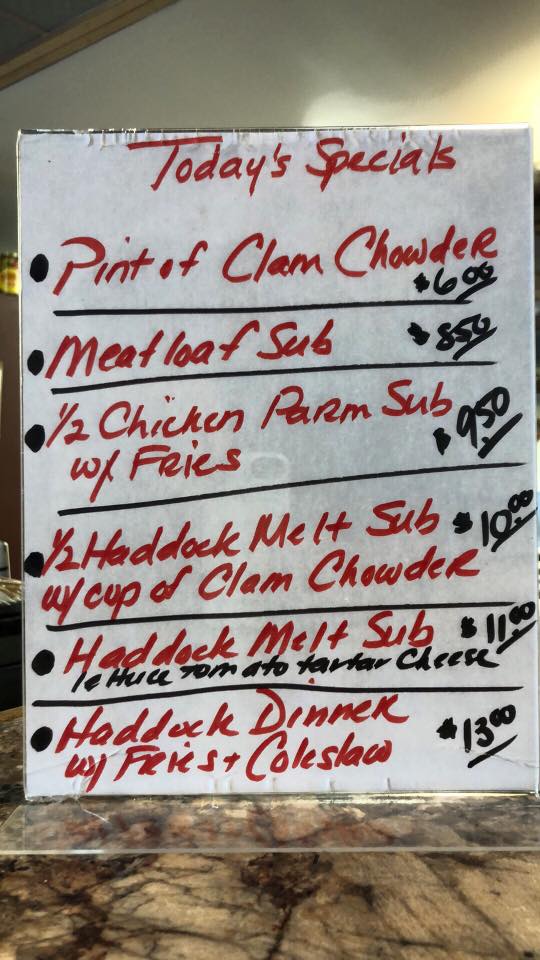 Today's Specials
• Pint of Clam Chowder
$6.00
• Meatloaf Sub $8.50
• 1/2 Chicken Parm Sub $9.50
w/ Fries
• 1/2 Haddock Melt Sub $10.00
w/ cup of Clam Chowder
• Haddock Melt Sub $11.00
lettuce tomato tartar cheese
• Haddock Dinner $13.00
w/ Fries + Coleslaw